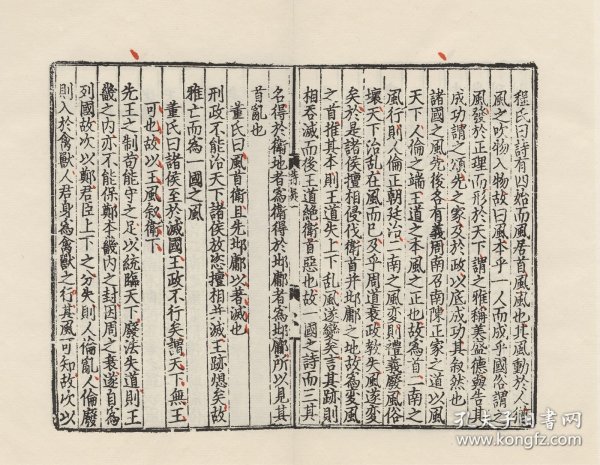 程氏曰詩有四始而風居首風風也其風動於人猶
風之吹物入物故曰風本乎一人而成乎國俗謂之
風發於正理而形於天下謂之雅稱美盛德與告其
成功謂之頌先之家及於政以底成功其叙然也
諸國之風先後各有義周南召南陳正家之道以風
天下人倫之端王道之本風之正也故為首二南之
風行則人倫正朝廷治二南之風变則禮義廢風俗
壞天下治亂在風而已及乎周道衰政教失風遂变
矣於是諸侯擅相侵伐衛首并邶鄘之地故為变風
之首推其本則王道失上下亂風遂變矣言其跡則
相吞滅而後王道絶衛首惡也故一國之詩而三其
名得於衛地者為衛得於邶鄘者為邶鄘所以見其
首亂也
董氏曰風首衛且先邶鄘以著滅也
刑政不能治天下諸侯放恣擅相并滅王跡熄矣故
雅亡而為一國之風
董氏曰諸侯至於滅國王政不行矣謂天下無王
可也故以王風叙衛下
先王之制苟能守之足以統臨天下廢法失道則王
畿之内亦不能保鄭本畿内之封因周之衰遂自為
列國故次以鄭君臣上下之分失則人倫亂人倫廢
則入於禽獸人君身為禽獸之行其風可知故次以
孔夫子旧书网
www.kongfz.com